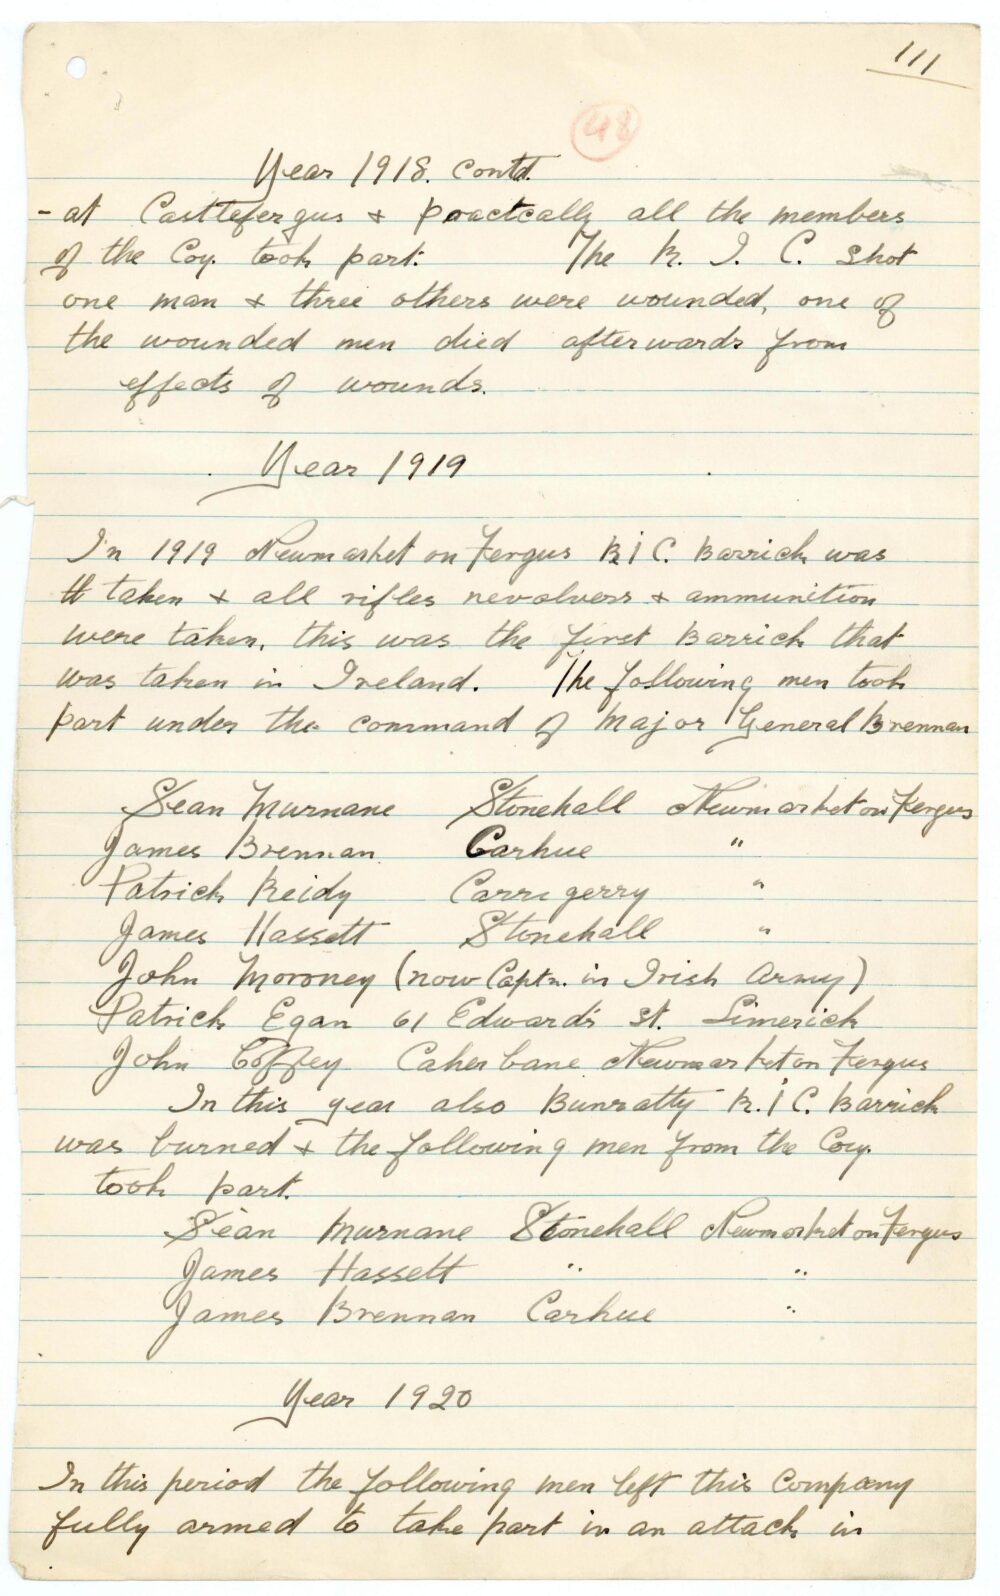 111
48
Year 1918. contd.
- at Castlefergus & practcally all the members
of the Coy. took part. The R. I. C. shot
one man & three others were wounded, one of
the wounded men died afterwards from
effects of wounds.
Year 1919
In 1919 Newmarket on Fergus R I C. Barrick was
tt taken & all rifles revolvers & ammunition
were taken, this was the first Barrick that
was taken in Ireland. The following men took
part under the command of Major General Brennan
Sean Murnane Stonehall Newmarket on Fergus
James Brennan Carhue "
Patrick Reidy Carrigerry "
James Hassett Stonehall "
John Moroney (now Captn. in Irish Army)
Patrick Egan 61 Edward's St. Limerick
John Coffey Caherbane Newmarket on Fergus
In this year also Bunratty R. I C. Barrick
was burned & the following men from the Coy.
took part.
Séan Murnane Stonehall Newmarket on Fergus
James Hassett " "
James Brennan Carhue "
Year 1920
In this period the following men left this Company
fully armed to take part in an attack in